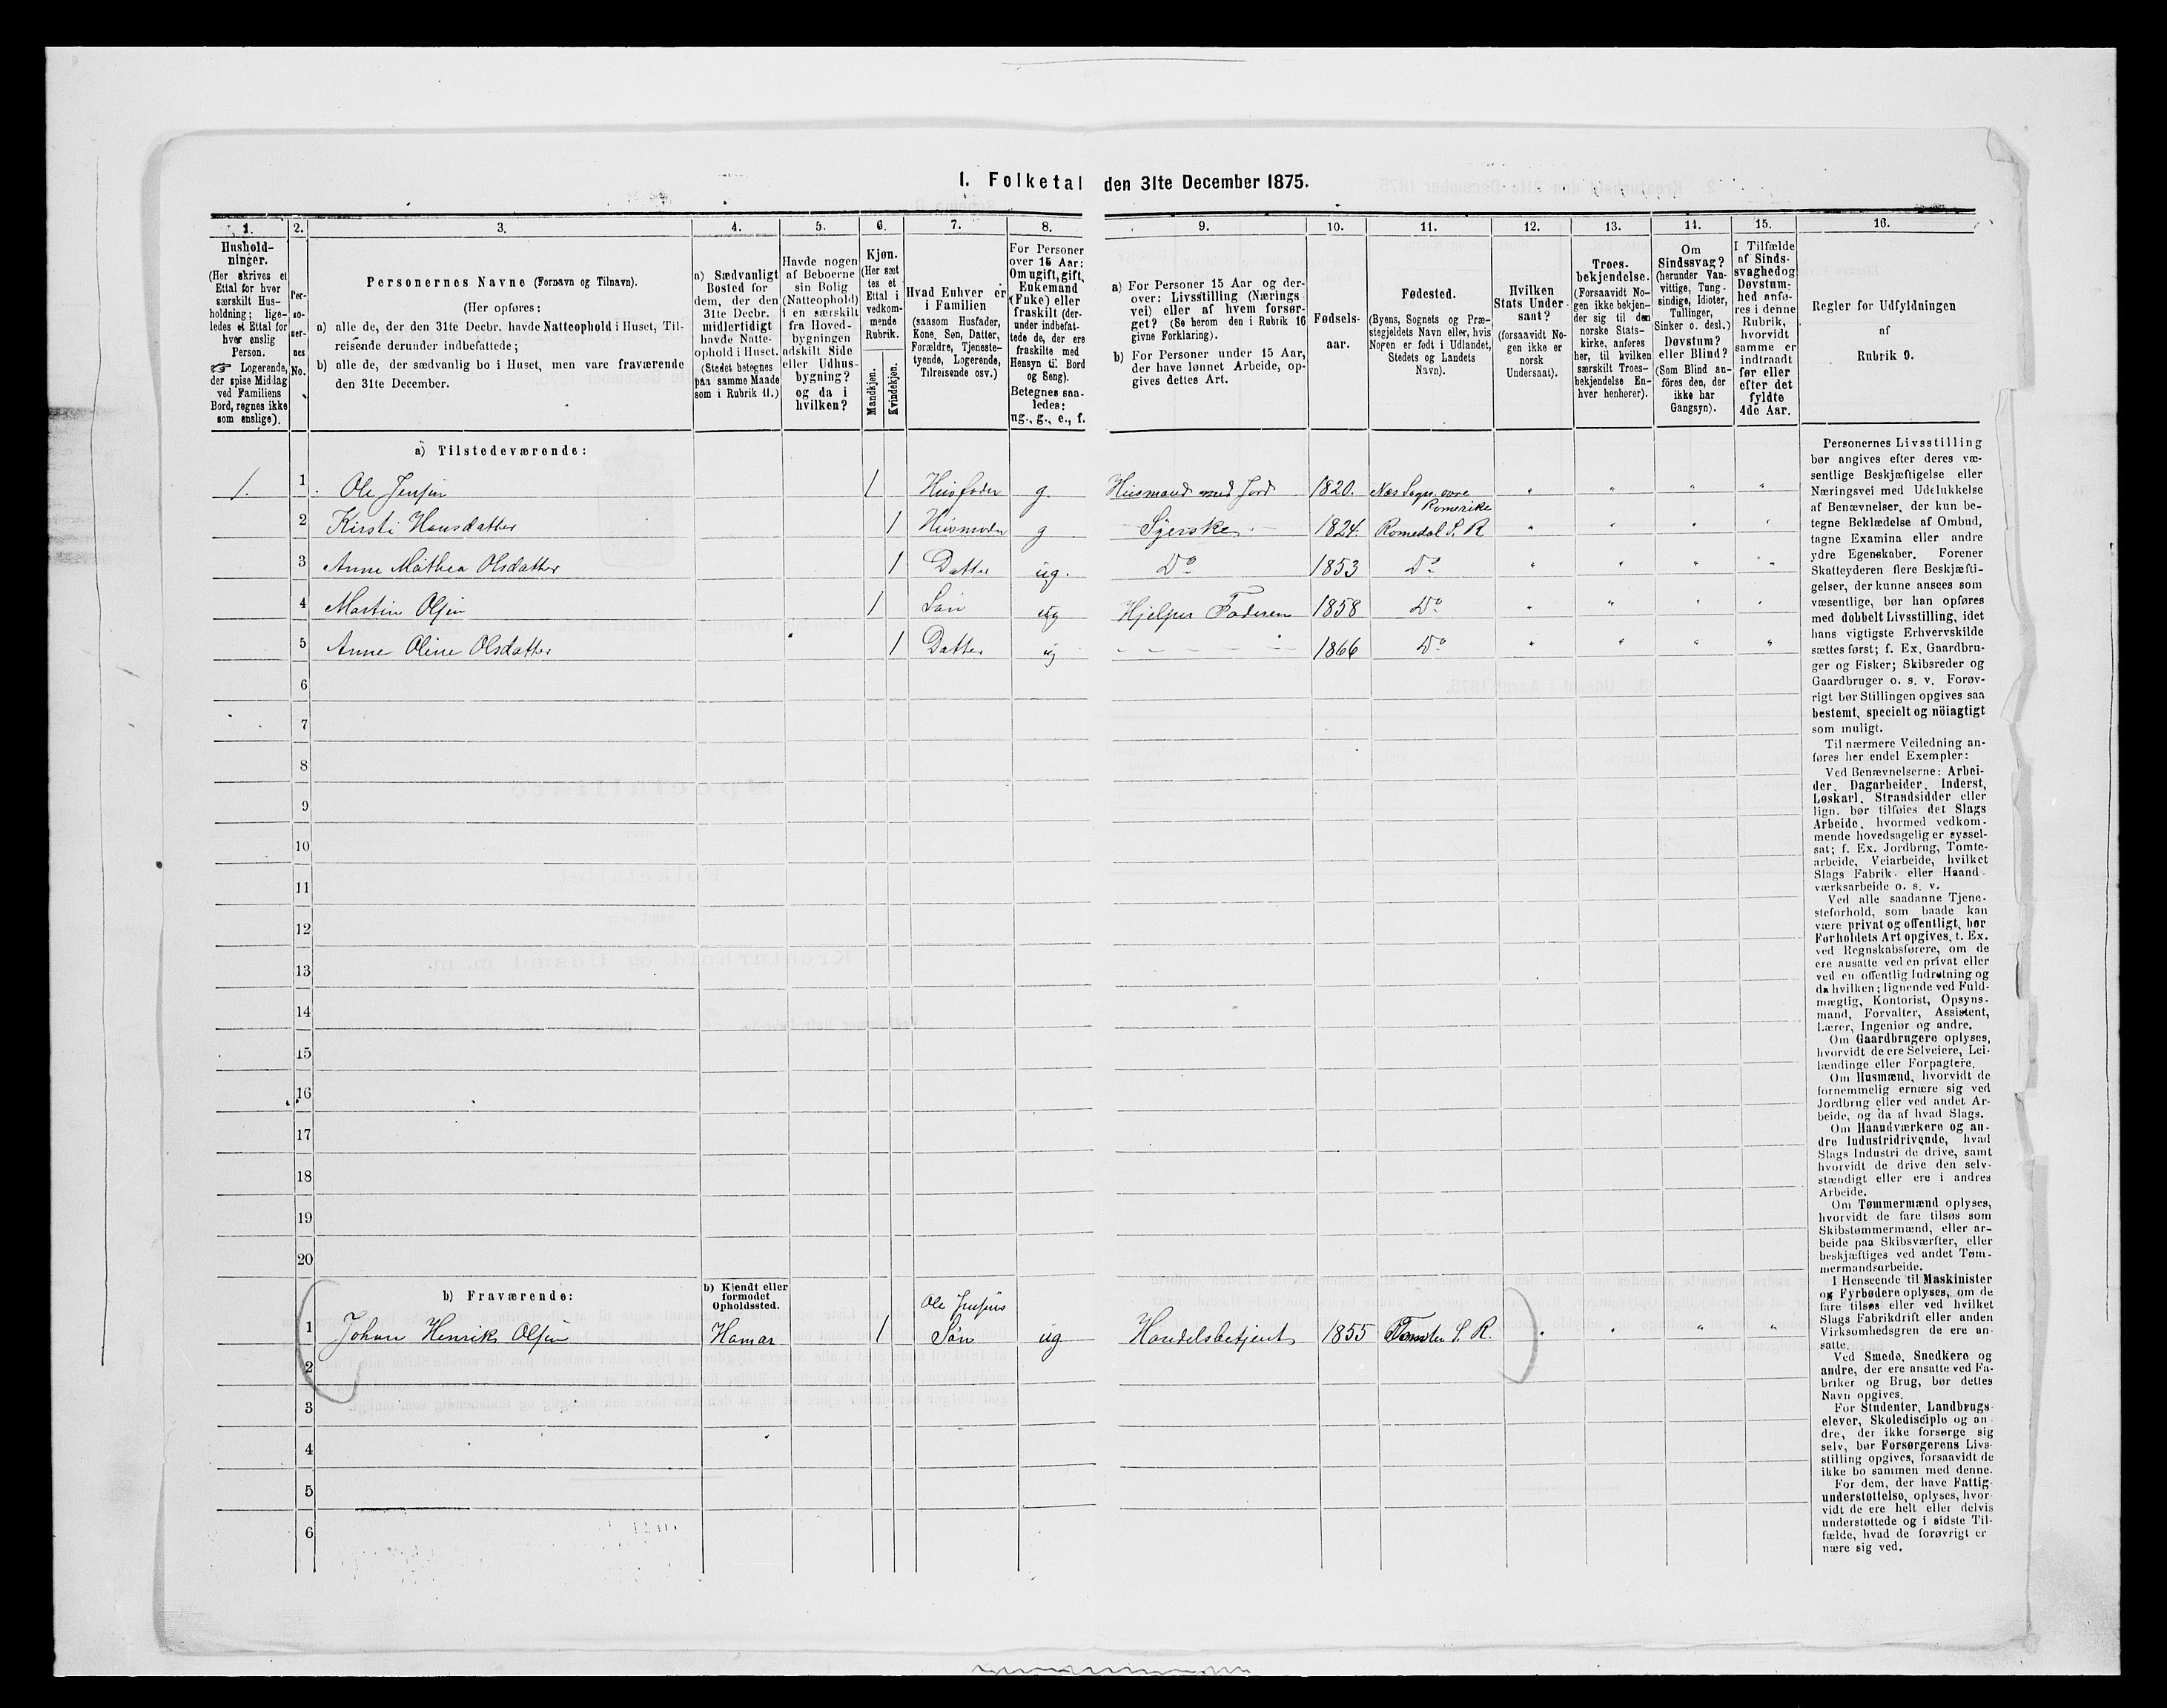 1. Folketal den 31te December 1875.
1. 2. 3. 4. 5. 6. 7. 8. 9. 10. 11. 12. 13. 14. 15. 16.
Hushold-
ninger.
(Her skrives et
Ettal for hver
særskilt Hus-
holdning; lige-
ledes et Ettal for
hver enslig
Person.
☞ Logerende,
der spise Middag
ved Familiens
Bord, regnes ikke
som enslige).
Per-
so-
ner-
nes
No.
Personernes Navne (Fornavn og Tilnavn).
(Her opføres:
a) alle de, der den 31te Decbr. havde Natteophold i Huset, Til-
reisende derunder indbefattede;
b) alle de, der sædvanlig bo i Huset, men vare fraværende
den 31te December.
a) Sædvanligt
Bosted for
dem, der den
31te Decbr.
midlertidigt
havde Natte-
ophold i Huset.
(Stedet betegnes
paa samme Maade
som i Rubrik 11.)
Havde nogen
af Beboerne
sin Bolig
(Natteophold)
i en særskilt
fra Hoved-
bygningen
adskilt Side
eller Udhus-
bygning?
og da i
hvilken?
Kjøn.
(Her sæt
tes et
Ettal i
vedkom-
mende
Rubrik.
Mandkjøn.
Kvindekjøn.
Hvad Enhver er
i Familien
(saasom Husfader,
Kone, Søn, Datter,
Forældre, Tjeneste-
tyende, Logerende,
Tilreisende osv.)
For Personer
over 15 Aar:
Om ugift, gift,
Enkemand
(Enke) eller
fraskilt (der-
under indbefat-
tede de, der ere
fraskilte med
Hensyn til Bord
og Seng).
Betegnes saa-
ledes:
ug., g., e., f.
a) For Personer 15 Aar og der-
over: Livsstilling (Nærings
vei) eller af hvem forsør-
get? (Se herom den i Rubrik 16
givne Forklaring).
b) For Personer under 15 Aar,
der have lønnet Arbeide, op-
gives dettes Art.
Fødsels-
aar.
Fødested.
(Byens, Sognets og Præ-
stegjeldets Navn eller, hvis
Nogen er født i Udlandet,
Stedets og Landets
Navn).
Hvilken
Stats Under-
saat?
(forsaavidt No-
gen ikke er
norsk
Undersaat).
Troes-
bekjendelse.
(Forsaavidt No-
gen ikke bekjen-
der sig til den
norske Stats-
kirke, anføres
her, til hvilken
særskilt Troes-
bekjendelse En-
hver henhører).
Om
Sindssvag?
(herunder Van-
vittige, Tung-
sindige, Idioter,
Tullinger,
Sinker o. desl.)
Døvstum?
eller Blind?
(Som Blind an-
føres den, der
ikke har
Gangsyn).
I Tilfælde
af Sinds-
svaghed og
Døvstum-
hed anfø-
res i denne
Rubrik,
hvorvidt
samme er
indtraadt
før eller
efter det
fyldte
4de Aar.
Regler for Udfyldningen
af
Rubrik 9.
a) Tilstedeværende:
1. 1 Ole Jensen 1 Husfader g. Husmand med Jord 1820. Næs Sogn øvre Romerike " " " "
2 Kirsti Hansdatter 1 Husmoder g Syerske 1824. Romedal S. R " " " "
3 Anne Mathea Olsdatter 1 Datter ug. Do 1853 Do " " " "
4 Martin Olsen 1 Søn ug Hjelper Faderen 1858 Do " " " "
5 Anne Oline Olsdatter 1 Datter ug - - - - 1866 Do " " " "
6
7
8
9
10
11
12
13
14
15
16
17
18
19
20
b) Fraværende:
b) Kjendt eller
formodet
Opholdssted.
1 Johan Henrik Olsen Hamar 1 Ole Jensens Søn ug Handelsbetjent 1855 S. R. " " " "
2
3
4
5
6
Personernes Livsstilling
bør angives efter deres væ-
sentlige Beskjæftigelse eller
Næringsvei med Udelukkelse
af Benævnelser, der kun be-
tegne Beklædelse af Ombud,
tagne Examina eller andre
ydre Egenskaber. Forener
Skatteyderen flere Beskjæfti-
gelser, der kunne ansees som
væsentlige, bør han opføres
med dobbelt Livsstilling, idet
hans vigtigste Erhvervskilde
sættes først; f. Ex. Gaardbru-
ger og Fisker; Skibsreder og
Gaardbruger o. s. v. Forøv-
rigt bør Stillingen opgives saa
bestemt, specielt og nöiagtigt
som muligt.
Til nærmere Veiledning an-
føres her endel Exempler:
Ved Benævnelserne: Arbei-
der, Dagarbeider, Inderst,
Løskarl, Strandsidder eller
lign. bør tilføies det Slags
Arbeide, hvormed vedkom-
mende hovedsagelig er syssel-
sat; f. Ex. Jordbrug, Tomte-
arbeide, Veiarbeide, hvilket
Slags Fabrik- eller Haand-
værksarbeide o. s. v.
Ved alle saadanne Tjene-
steforhold, som baade kan
være privat og offentligt, bør
Forholdets Art opgives, t. Ex.
ved Regnskabsførere, om de
ere ansatte ved en privat eller
ved en offentlig Indretning og
da hvilken; lignende ved Fuld-
mægtig, Kontorist, Opsyns-
mand, Forvalter, Assistent,
Lærer, Ingeniør og andre.
Om Gaardbrugere oplyses,
hvorvidt de ere Selveiere, Lei-
lændinge eller Forpagtere.
Om Husmænd, hvorvidt de
fornemmelig ernære sig ved
Jordbrug eller ved andet Ar-
beide, og da af hvad Slags.
Om Haandværkere og an-
dre Industridrivende, hvad
Slags Industri de drive, samt
hvorvidt de drive den selv-
stændigt eller ere i andres
Arbeide.
Om Tømmermænd oplyses,
hvorvidt de fare tilsøs som
Skibstømmermænd, eller ar-
beide paa Skibsværfter, eller
beskjæftiges ved andet Tøm-
mermandsarbeide.
I Henseende til Maskinister
og Fyrbødere oplyses, om de
fare tilsøs eller ved hvilket
Slags Fabrikdrift eller anden
Virksomhedsgren de ere an-
satte.
Ved Smede, Snedkere og
andre, der ere ansatte ved Fa-
briker og Brug, bør dettes
Navn opgives.
For Studenter, Landbrugs-
elever, Skoledisciple og an-
dre, der ikke forsørge sig
selv, bør Forsørgerens Livs-
stilling opgives, forsaavidt de
ikke bo sammen med denne.
For dem, der have Fattig-
understøttelse, oplyses, hvor-
vidt de ere helt eller delvis
understøttede og i sidste Til-
fælde, hvad de forøvrigt er
nære sig ved.